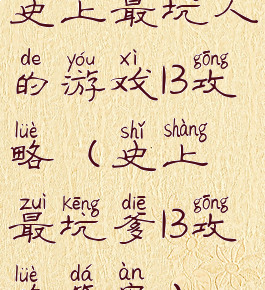 史上最坑人
de yóu xì gōng
的游戏13攻
lüè shǐ shàng
略（史上
zuì kēng diē gōng
最坑爹13攻
lüè dá àn